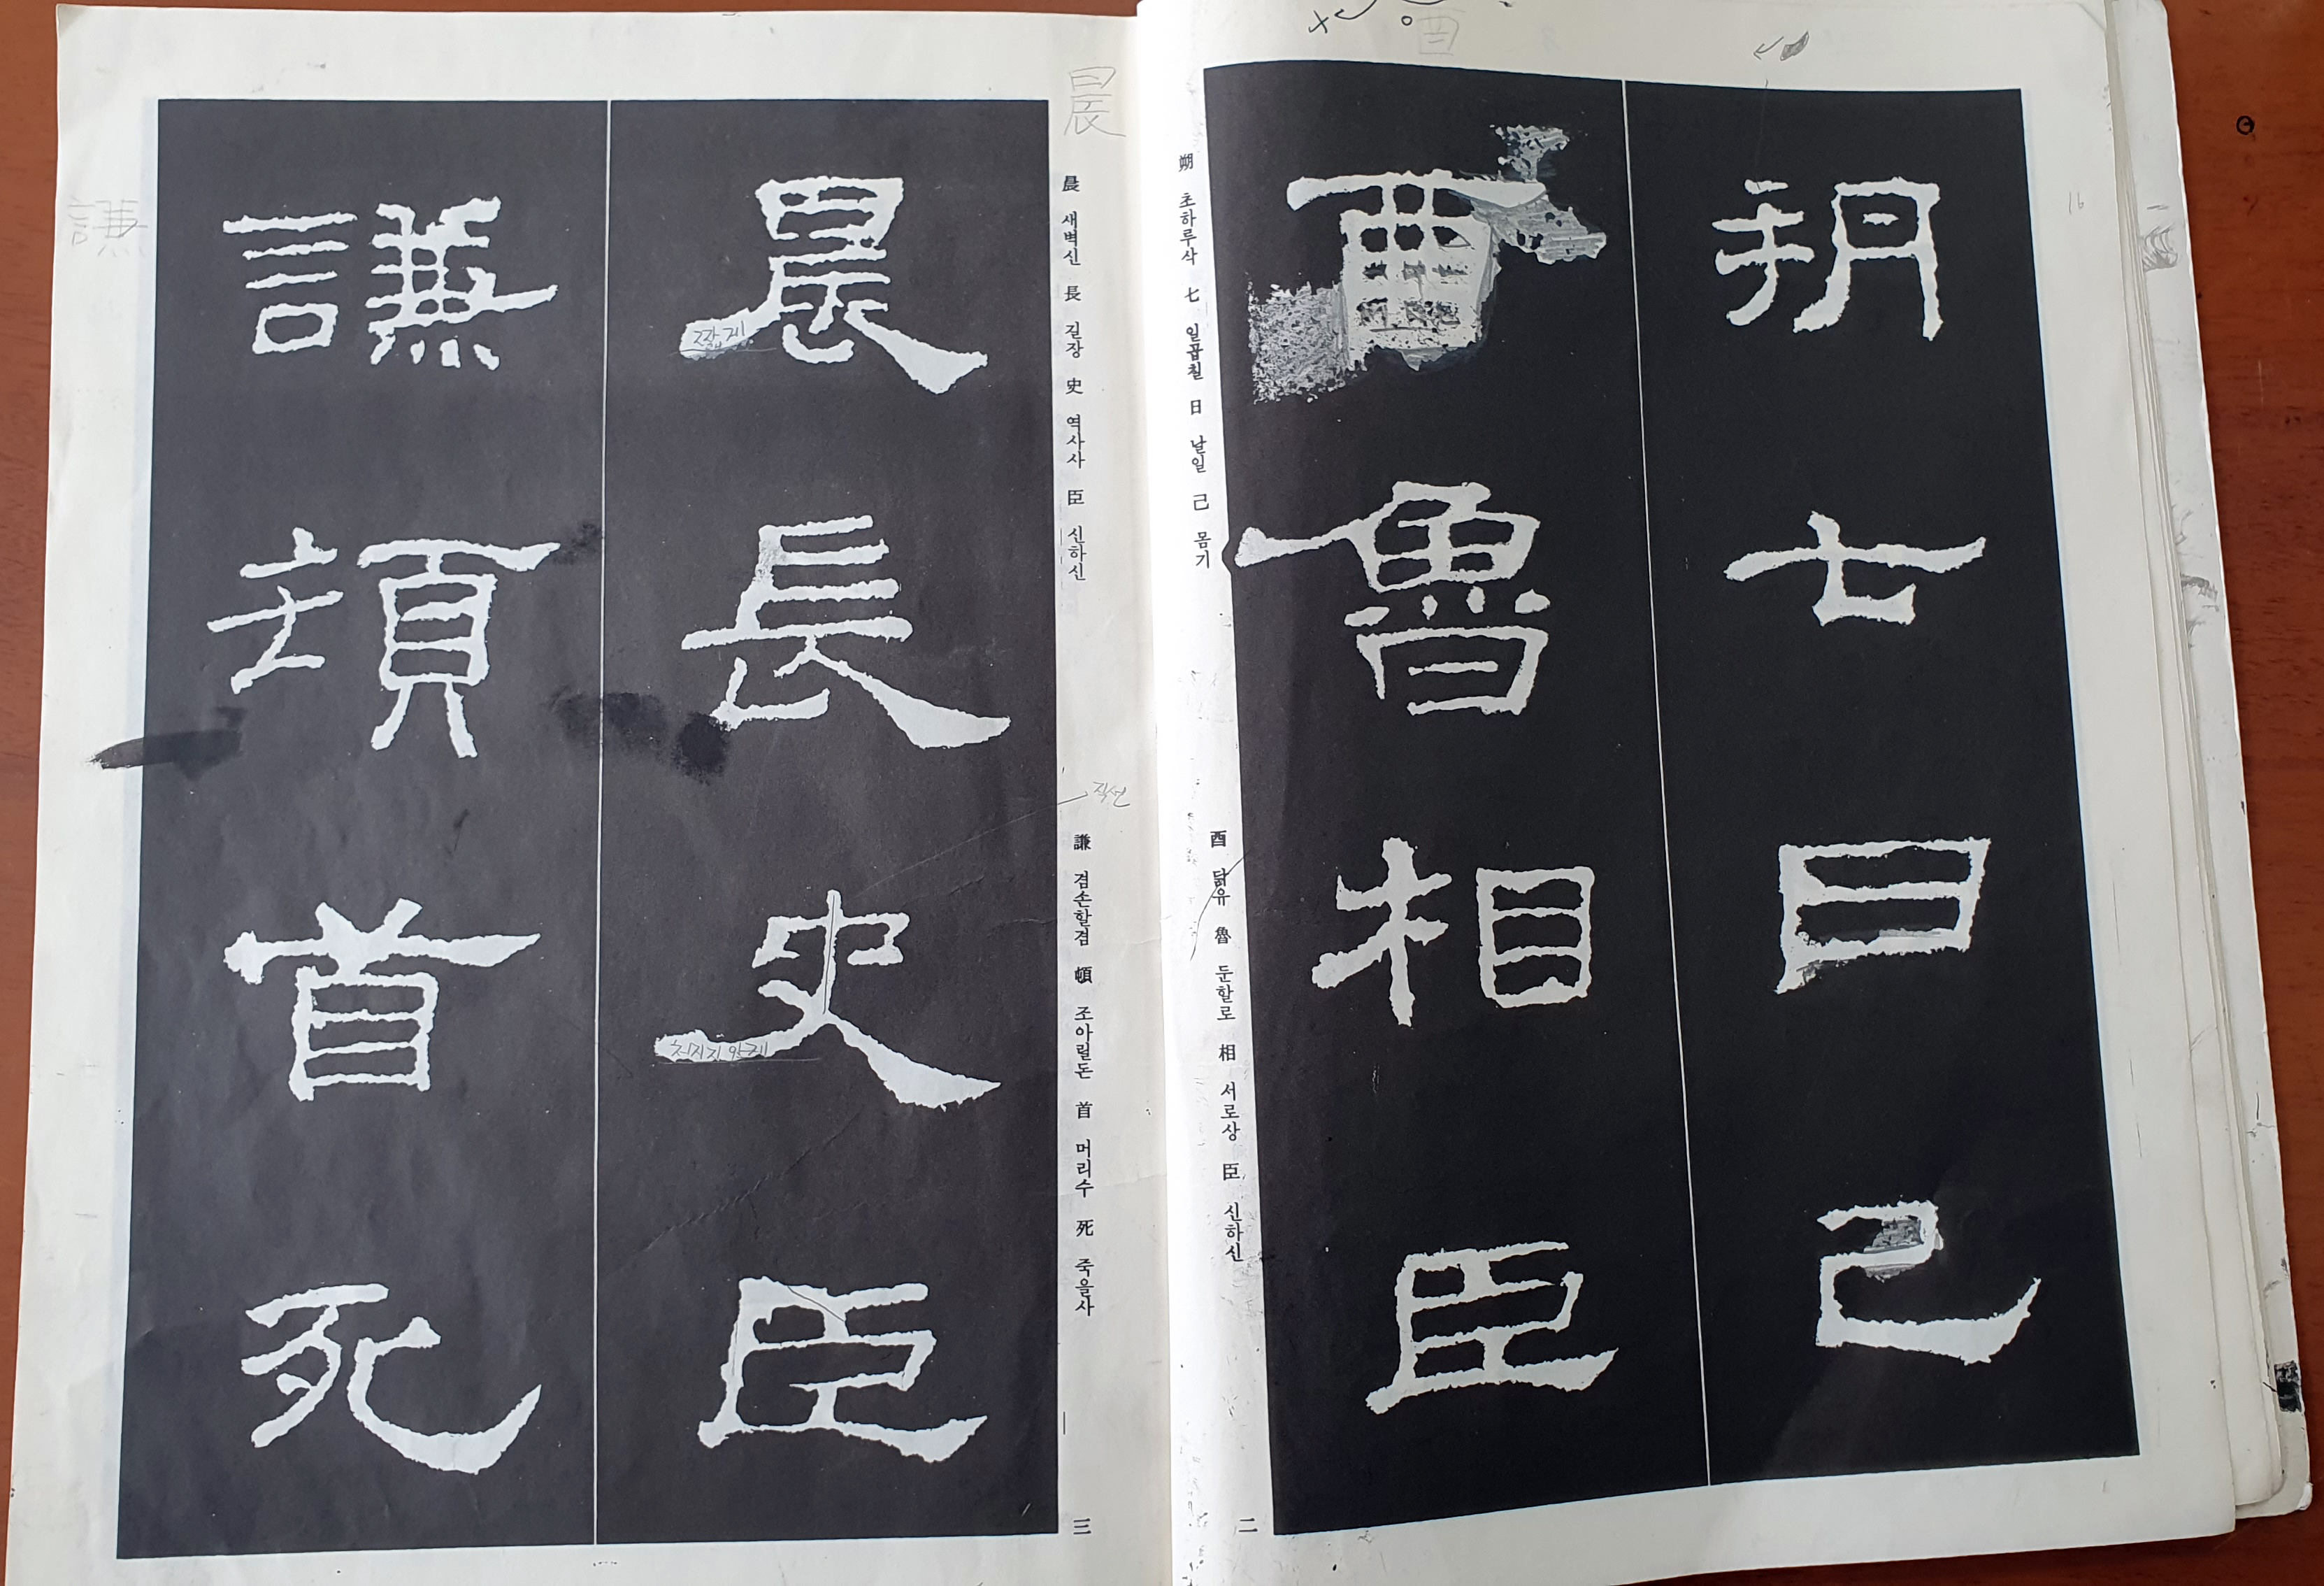 朔七日己
酉魯相臣
朔 초하루삭 七 일곱칠 日 날일 己 몸기
酉 닭유 魯 둔할로 相 서로상 臣 신하신
二
晨長史臣
謙頓首死
晨 새벽신 長 길장 史 역사사 臣 신하신
謙 겸손할겸 頓 조아릴돈 首 머리수 死 죽을사
三
晨
謙
짧게
직선
16